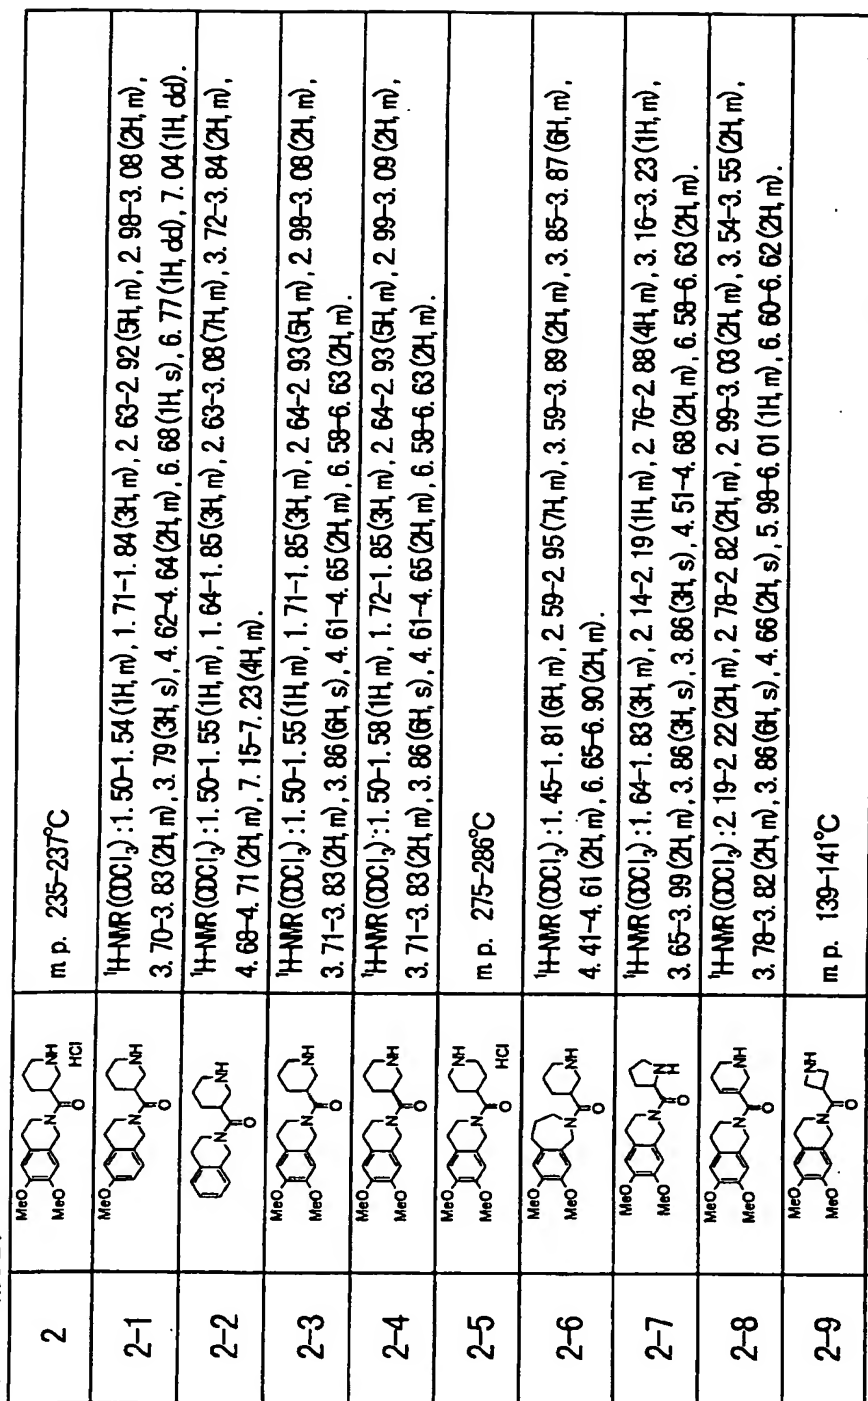 2
MeO
MeO
N
O
NH
HCl
m p. 235-237°C
2-1
MeO
N
O
NH
¹H-NMR(CDCl₃):1. 50-1. 54(1H, m), 1. 71-1. 84(3H, m), 2. 63-2. 92(5H, m), 2. 98-3. 08(2H, m),
3. 70-3. 83(2H, m), 3. 79(3H, s), 4. 62-4. 64(2H, m), 6. 68(1H, s), 6. 77(1H, dd), 7. 04(1H, dd).
2-2
N
O
NH
¹H-NMR(CDCl₃):1. 50-1. 55(1H, m), 1. 64-1. 85(3H, m), 2. 63-3. 08(7H, m), 3. 72-3. 84(2H, m),
4. 68-4. 71(2H, m), 7. 15-7. 23(4H, m).
2-3
MeO
MeO
N
O
NH
¹H-NMR(CDCl₃):1. 50-1. 55(1H, m), 1. 71-1. 85(3H, m), 2. 64-2. 93(5H, m), 2. 98-3. 08(2H, m),
3. 71-3. 83(2H, m), 3. 86(6H, s), 4. 61-4. 65(2H, m), 6. 58-6. 63(2H, m).
2-4
MeO
MeO
N
O
NH
¹H-NMR(CDCl₃):1. 50-1. 58(1H, m), 1. 72-1. 85(3H, m), 2. 64-2. 93(5H, m), 2. 99-3. 09(2H, m),
3. 71-3. 83(2H, m), 3. 86(6H, s), 4. 61-4. 65(2H, m), 6. 58-6. 63(2H, m).
2-5
MeO
MeO
N
O
NH
HCl
m p. 275-286°C
2-6
MeO
MeO
N
O
NH
¹H-NMR(CDCl₃):1. 45-1. 81(6H, m), 2. 59-2. 95(7H, m), 3. 59-3. 89(2H, m), 3. 85-3. 87(6H, m),
4. 41-4. 61(2H, m), 6. 65-6. 90(2H, m).
2-7
MeO
MeO
N
O
N
H
¹H-NMR(CDCl₃):1. 64-1. 83(3H, m), 2. 14-2. 19(1H, m), 2. 76-2. 88(4H, m), 3. 16-3. 23(1H, m),
3. 65-3. 99(2H, m), 3. 86(3H, s), 3. 86(3H, s), 4. 51-4. 68(2H, m), 6. 58-6. 63(2H, m).
2-8
MeO
MeO
N
O
NH
¹H-NMR(CDCl₃):2. 19-2. 22(2H, m), 2. 78-2. 82(2H, m), 2. 99-3. 03(2H, m), 3. 54-3. 55(2H, m),
3. 78-3. 82(2H, m), 3. 86(6H, s), 4. 66(2H, s), 5. 98-6. 01(1H, m), 6. 60-6. 62(2H, m).
2-9
MeO
MeO
N
O
NH
m p. 139-141°C